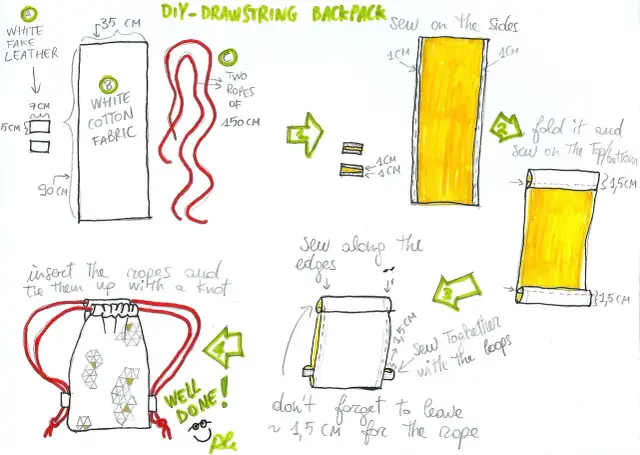 DIY-DRAWSTRING BACKPACK
A
WHITE
FAKE
LEATHER
7CM
5CM
35 CM
B
WHITE
COTTON
FABRIC
90CM
C
TWO
ROPES
OF
150CM
1
sew on the sides
1CM
1CM
1CM
1CM
2
fold it and
sew on the top/bottom
1,5CM
1,5CM
3
sew along the
edges
1,5CM
sew together
with the loops
don't forget to leave
~ 1,5 CM for the rope
4
insert the ropes and
tie them up with a knot
WELL
DONE!